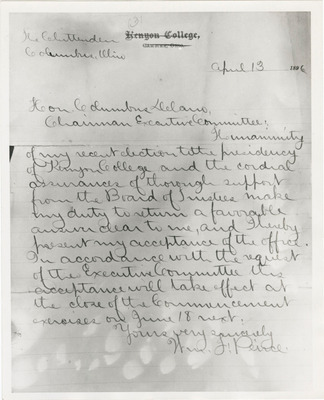 The Chittenden
Columbus, Ohio
Kenyon College,
Gambier, Ohio.
April 13 1896
Hon. Columbus Delano,
Chairman Executive Committee:
The unanimity
of my recent election to the presidency
of Kenyon College and the cordial
assurances of thorough support
from the Board of Trustees make
my duty to return a favorable
answer clear to me, and I hereby
present my acceptance of the office.
In accordance with the request
of the Executive Committee this
acceptance will take effect at
the close of the Commencement
exercises on June 18 next.
Yours very sincerely
Wm. F. Peirce